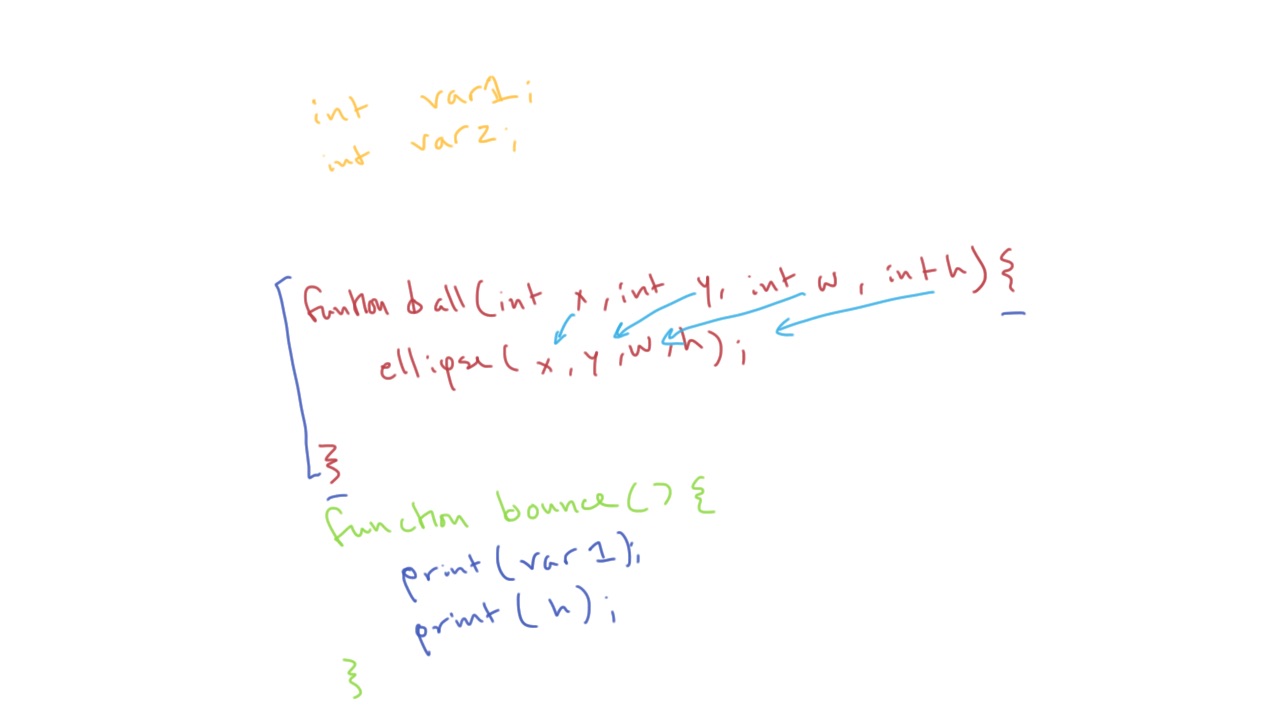 int var1;
int var2;
function ball(int x, int y, int w, int h){
ellipse(x, y, w, h);
}
function bounce(){
print(var1);
print(h);
}